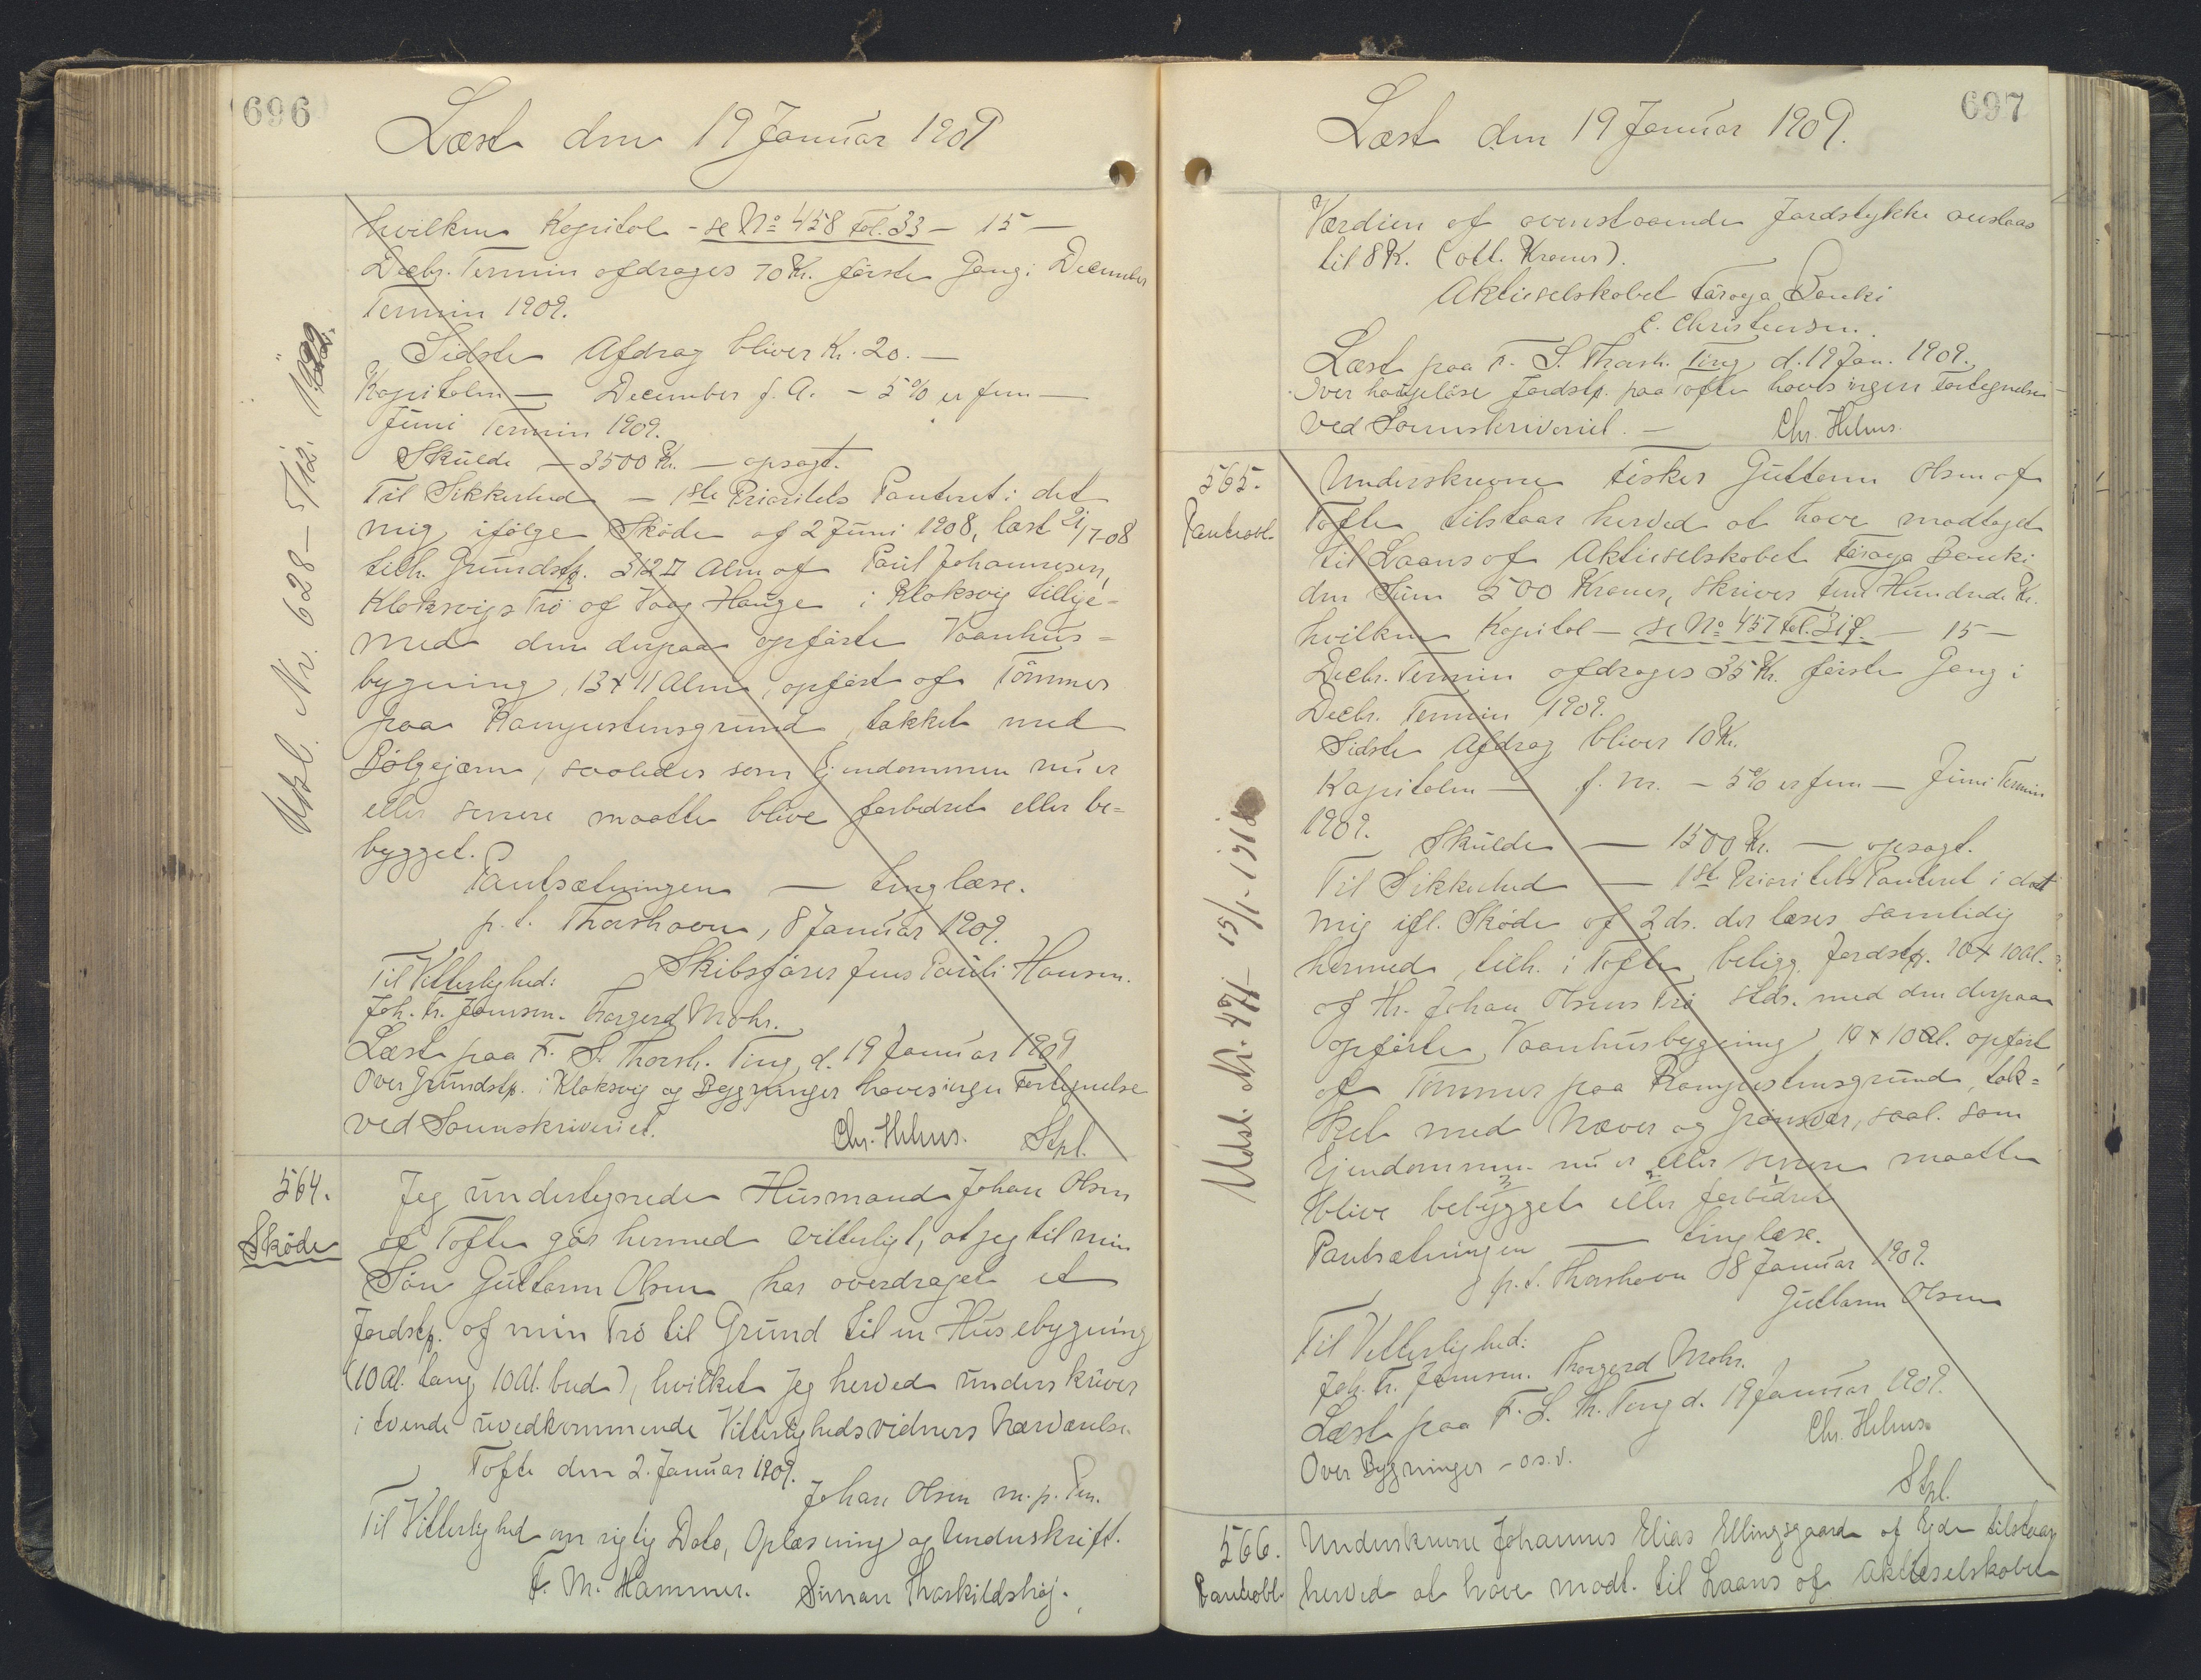 696
Læst den 19 Januar 1909
hvilken Kapital - se No 458 Fol. 33 - 15 -
Decbr. Termin afdrages 70 Kr. første Gang i December
Termin 1909.
Sidste Afdrag bliver Kr. 20. -
Kapitalen - December f. A. - 5% er fem -
Juni Termin 1909.
Skulde - 3500 Kr. - opsagt.
Til Sikkerhed - 1ste Prioritets Panteret i det
mig ifølge Skøde af 2 Juni 1908, læst 7-08
tilh. Grundstk. 312 □ Alen af Paul Johannesen,
Klaksvigs Trø og Vaag Hauge i Klaksvig tillige-
med den derpaa opførte Vaanhus=
bygning, 13 x 11 Alen, opført af Tømmer
paa Kampestensgrund, takket med
Bølgejærn, saaledes som Ejendommen nu er
eller senere maatte blive forbedret eller be=
bygget.
Pantsætningen - tinglæse.
p. t. Thorshavn, 8 Januar 1909.
Skibsfører Jens Pauli Hansen.
Til Vitterlighed:
Joh. Fr. Jensen. Thorgerd Mohr.
Læst paa F. S. Thorsh. Ting d. 19 Januar 1909
Over Grundstk. i Klaksvig og Bygninger haves ingen Fortegnelse
ved Sorenskriveriet. Chr. Helms. Stpl.
Udsl. Nr. 628 - 5/12. 1922.
564.
Skøde
Jeg undertegnede Husmand Johan Olsen
af Tofte gør hermed vitterligt, at jeg til min
Søn Guttorm Olsen har overdraget et
Jordstk. af min Trø til Grund til en Husebygning
(10 Al. lang, 10 Al. bred), hvilket jeg herved underskriver
i tvende uvedkommende Vitterlighedsvidners Nærværelse.
Tofte den 2. Januar 1909.
Johan Olsen m. p. Pen.
Til Vitterlighed om rigtig Dato, Oplæsning og Underskrift.
F. M. Hammer. Simon Thorkildshøj.
697
Læst den 19 Januar 1909.
Værdien af ovenstaaende Jordstykke anslaas
til 8 K. (otte Kroner).
Aktieselskabet Føroya Banki
C. Christensen.
Læst paa F. S. Thorsh. Ting d. 19 Jan. 1909.
Over haugeløse Jordstk. paa Tofte haves ingen Fortegnelse
ved Sorenskriveriet. - Chr. Helms.
565.
Panteobl.
Underskrevne Fisker Guttorm Olsen af
Tofte tilstaar herved at have modtaget
til Laans af Aktieselskabet Føroya Banki
den Sum 500 Kroner, skriver fem Hundrede Kr.
hvilken Kapital - se No 457 Fol. 31 f. - 15 -
Decbr. Termin afdrages 35 Kr. første Gang i
Decbr. Termin 1909.
Sidste Afdrag bliver 10 Kr.
Kapitalen - f. M. - 5% er fem - Juni Termin
1909. Skulde - 1500 Kr. - opsagt.
Til Sikkerhed - 1ste Prioritets Panteret i det
mig ifl. Skøde af 2 ds. der læses samtidig
hermed, tilh. i Tofte beligg. Jordstk. 10 x 10 Al.
af Hr. Johan Olsens Trø stds. med den derpaa
opførte Vaanhusbygning 14 x 10 Al. opført
af Tømmer paa Kampestensgrund, tak=
ket med Næver og Grønsvær, saal. som
Ejendommen nu er eller senere maatte
blive bebygget eller forbedret
Pantsætningen - tinglæse.
p. t. Thorshavn 8 Januar 1909.
Guttorm Olsen
Til Vitterlighed:
Joh. Fr. Jensen. Thorgerd Mohr.
Læst paa F. S. Th. Ting d. 19 Januar 1909.
Over Bygninger - o.s.v. Chr. Helms
Stpl.
Udsl. Nr. 471 - 15/1. 1918
566.
Panteobl.
Underskrevne Johannes Elias Ellingsgaard af Ejde tilstaar
herved at have modt. til Laans af Aktieselskabet